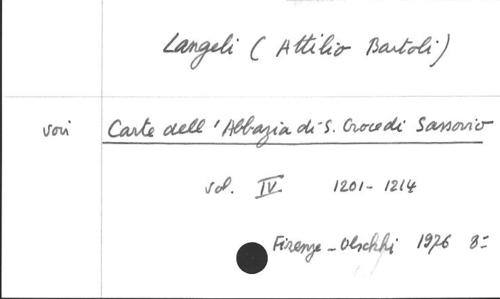 Langeli ( Attilio Bartoli)
voir Carte dell'Abbazia di S. Croce di Sassovivo
vol. IV 1201-1214
Firenze - Olschki 1976 8=